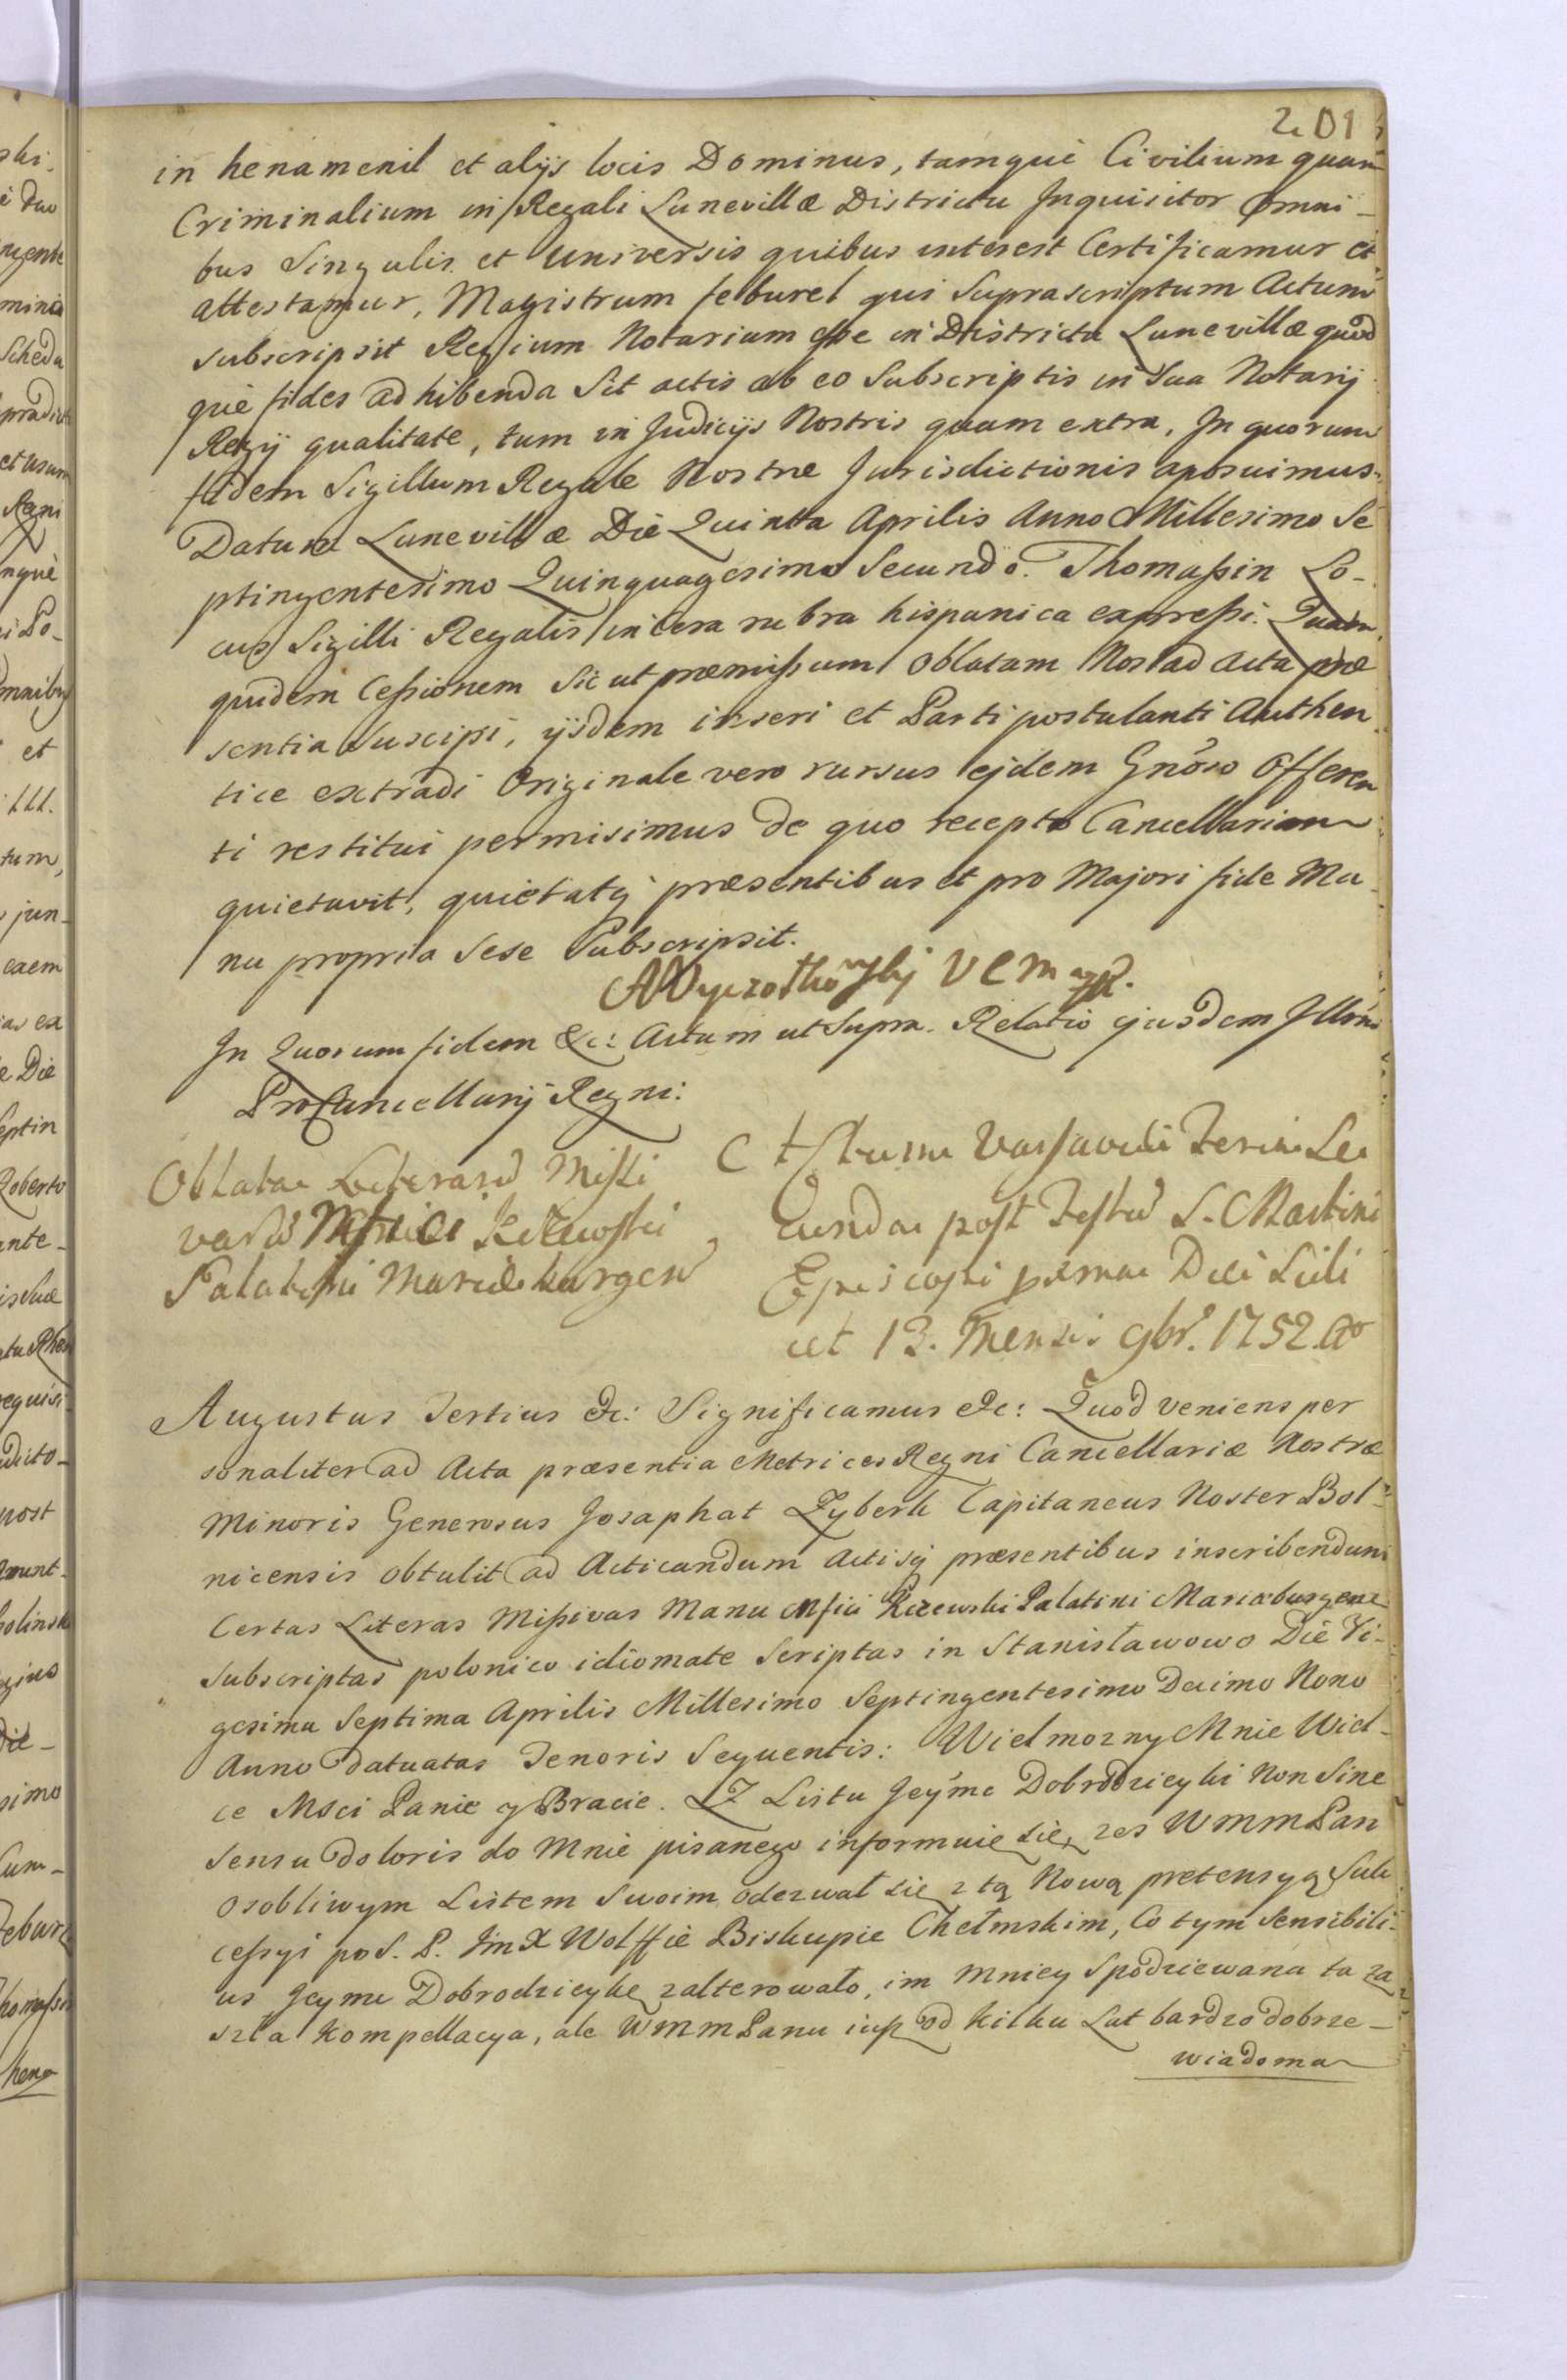 201
in henamenil et alijs locis Dominus, tamquè Civilium quam
Criminalium in Regali Lunevillæ Districtu Inquisitor Omni-
bus Singulis et Universis quibus interest Certificamur et
attestamur, Magistrum feburel qui Suprascriptum Actum
subscripsit Regium Notarium esse in Districtu Lunevillæ quod
què fides adhibenda Sit actis ab eo Subscriptis in Sua Notarij
Regij qualitate, tum in Judicijs Nostris quam extra, In quorum
fidem Sigillum Regale Nostræ Jurisdictionis aposuimus.
Datum Lunevillæ Die Quinta Aprilis Anno Millesimo Se
ptingentesimo Quinquagesimo Secundo. Thomaßin Lo-
cus Sigilli Regalis in cera rubra hispanica expreßi. Quam
quidem Ceßionem Sic ut præmißum oblatam Nos ad Acta præ
sentia Suscipi, ijsdem inseri et Parti postulanti Authen
tice extradi Originale vero rursus ejdem Gnõso Offeren
ti restitui permisimus de quo recepto Cancellariam
quietavit, quietatq praesentibus et pro Majori fide Ma-
nu propria Sese Subscripsit.
VCM
In Quorum fidem &c: Actum ut Supra. Relatio ejusdem Illõmi
ProCancellarij Regni:
Oblatae Literarũ Mißi
varũ Mfici Kczewski
Palatini Mariæburgen
Actum Varsaviæ Feria Se
cunda post Festũ S. Martini
Episcopi prima Die Scili
cet 13. Mensis 9br. 1752 Ao
Augustus Tertius &c: Significamus &c: Quod veniens per
sonaliter ad Acta praesentia Metrices Regni Cancellariæ Nostræ
Minoris Generosus Josaphat Zyberk Capitaneus Noster Bol-
nicensis obtulit ad Acticandum Actisq praesentibus inscribendum
Certas Literas Mißivas Manu Mfici Kczewski Palatini Mariæburgens
Subscriptas polonico idiomate Scriptas in Stanisławowo Die Vi-
gesima Septima Aprilis Millesimo Septingentesimo Decimo Nono
Anno datuatas Tenoris Sequentis: Wielmozny Mnie Wiel-
ce Msci Panie y Bracie. Z Listu Jeyme Dobrodzieyki Non Sine
sensu doloris do Mnie pisanego informuię się, zes WmmPan
osobliwym Listem Swoim odezwał się z tą Nową pretensyą Suk
ceßyi po S. P. JmX Wolffie Biskupie Chełmskim, Co tym Sensibili-
us Jeyme Dobrodzieykę zalterowało, im mniey Spodziewana ta za
szła kompellacya, ale WmmPanu iuß od kilku Lat bardzo dobrze-
wiadoma